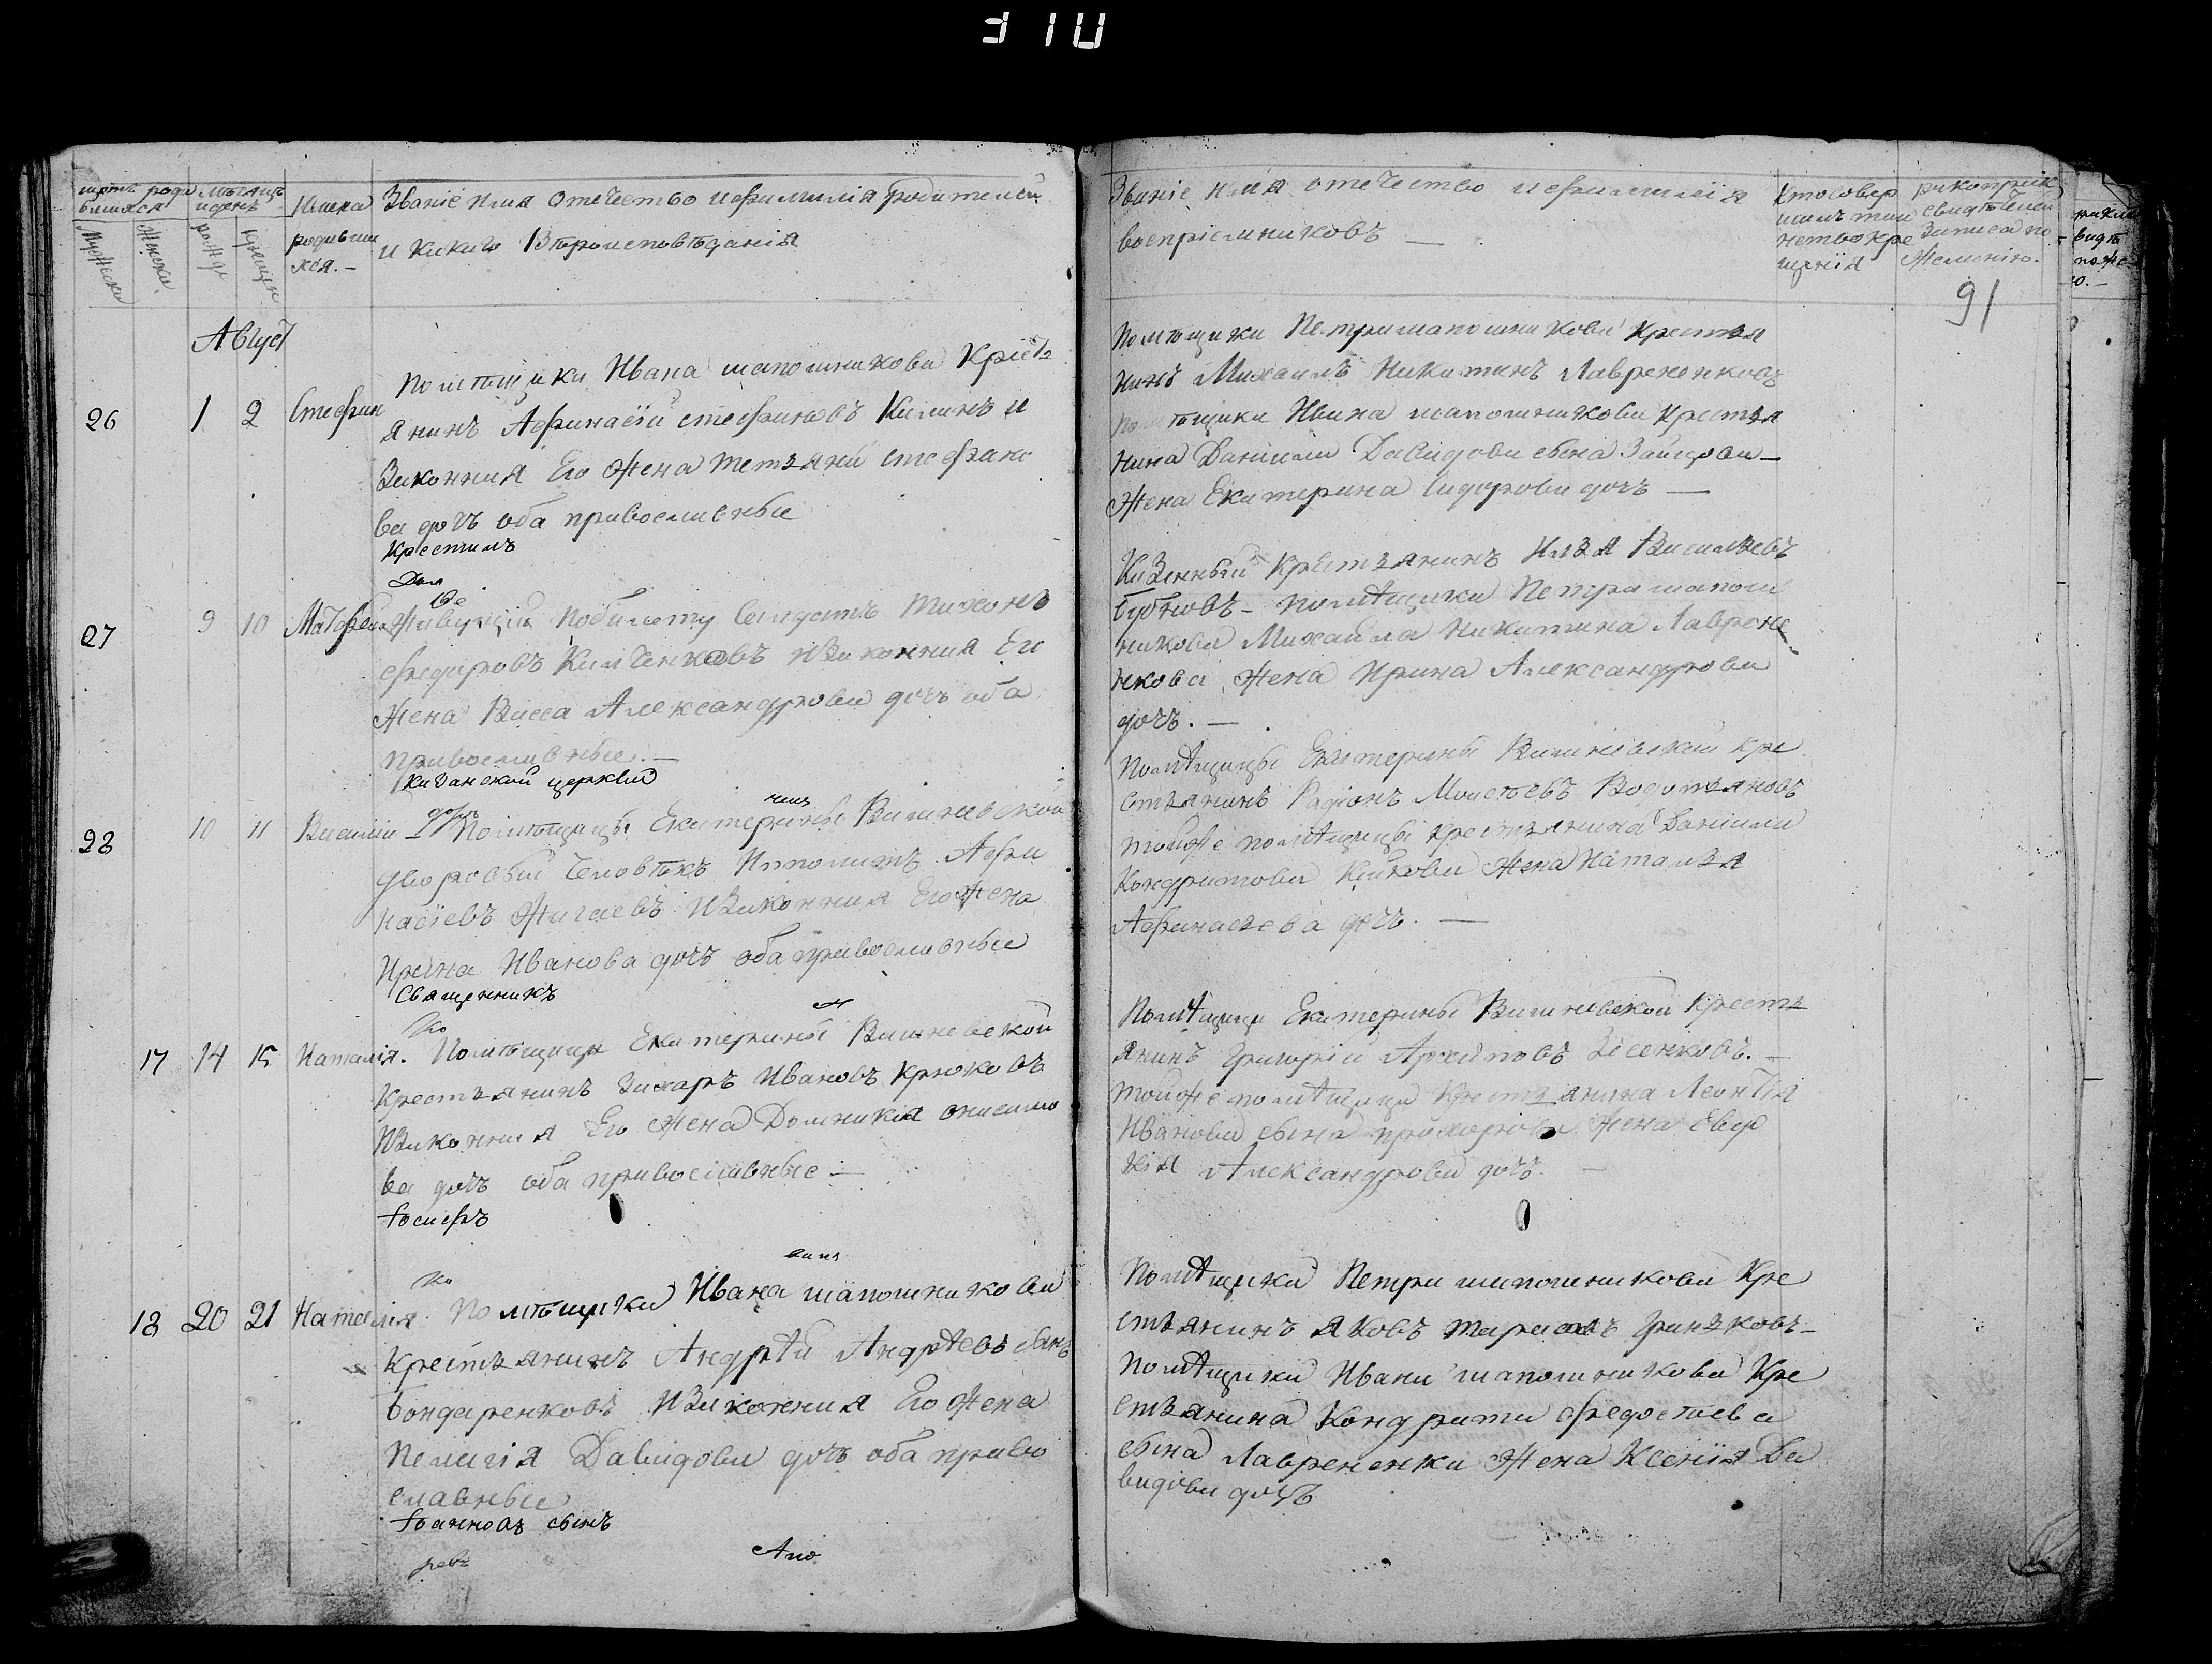 310
щотъ роди
вшихся
Мужеска
Женска
мѣсяцъ
и день
рожде
креще
Имена
родивши
хся. —
Званіе имя отечество и фамилія родителей
и какаго вѣроисповѣданія
Августъ
26 1 2 Стефан
Помѣщика Ивана шапошникова Крестъ
янинъ Афанасій стефановъ Калинъ и
законная Его жена татъяна стефано
ва дочь оба православныя
Крестилъ
27 9 10 Матфей
Живущій по билету Солдатъ Тихонъ
федоровъ Калченковъ и законная Его
жена Васса Александрова дочь оба
православныя. —
казанской церквы
28 10 11 Василій
Помѣщицы Екатерины Вишневской
дворовый человѣкъ Ипполитъ Афа
насіевъ Жигаевъ и законная Его жена
Ирина Иванова дочь оба православныя
Священникъ
17 14 15 Наталія.
Помѣщицы Екатерины Вишневской
Крестъянинъ Захаръ Ивановъ Крюковъ
и законная Его жена Домникія онисимо
ва дочь оба православные —
Іосифъ
18 20 21 Наталія
Помѣщика Ивана шапошникова
Крестъянинъ Андрѣй Андрѣевъ сынъ
Бондаренковъ и законная Его жена
Пелагія Давидова дочь оба право
славныя
Іоанновъ сынъ
Званіе имя отечество и фамилія
воспріемниковъ —
Кто совер
шилъ таи
нство кре
щенія
рукоприк
свидѣтелей
записа по
желанію.
91
Помѣщика Петра шапошникова Крестъя
нинъ Михаилъ Никитинъ Лавроненковъ
помѣщика Ивана шапошникова Крестъя
нина Даніила Давидова сына Зайцова —
жена Екатерина Сидорова дочь —
Казенный Крестъянинъ Илья Васильевъ
Бубновъ — помѣщика Петра шапош
никова Михаила Никитина Лавроне
нкова жена Ирина Александрова
дочь. —
Помѣщицы Екатерины Вишневской Кре
стъянинъ Радіонъ Моисѣевъ Водотъяновъ
тойже помѣщицы крестъянина Даніила
Кондратова жена Наталья
Афанасьева дочь. —
Помѣщицы Екатерины Вишневской Крестъ
янинъ Григорій Архиповъ
тойже помѣщицы Крестъянина Леонтія
Иванова сына прохорова жена Евдо
кія Александрова дочь. —
Помѣщика Петра шапошникова Кре
стъянинъ Яковъ тарасовъ Гриньковъ —
помѣщика Ивана шапошникова Кре
стъянина Кондрата федосѣева
сына Лавроненки жена Ксенія Да
видова дочь